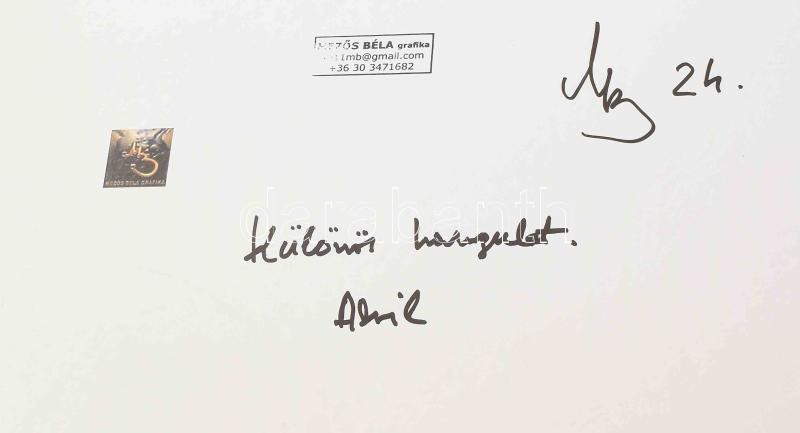 MEZŐS BÉLA grafika
11mb@gmail.com
+36 30 3471682
Mb 24.
MEZŐS BÉLA GRAFIKA
darabanth
Különös hangulat.
Akril